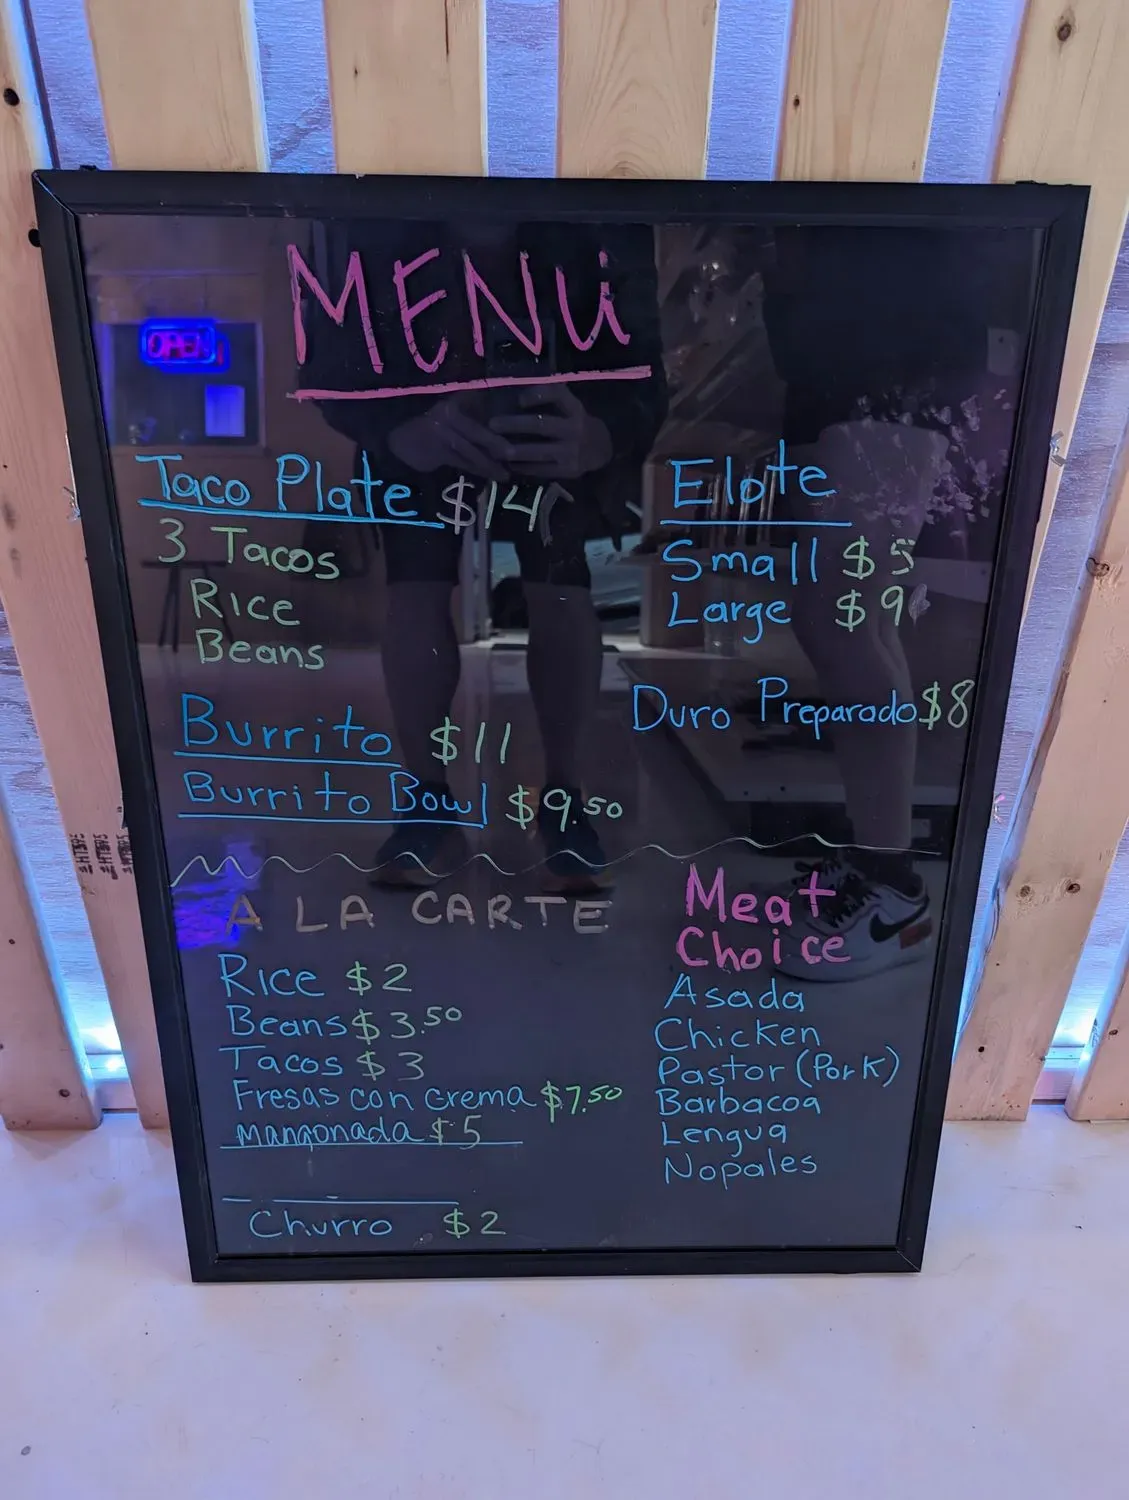 MENU
OPEN
Taco Plate $14
3 Tacos
Rice
Beans
Burrito $11
Burrito Bowl $9.50
Elote
Small $5
Large $9
Duro Preparado $8
A LA CARTE
Rice $2
Beans $3.50
Tacos $3
Fresas con crema $7.50
mangonada $5
Churro $2
Meat
Choice
Asada
Chicken
Pastor (Pork)
Barbacoa
Lengua
Nopales